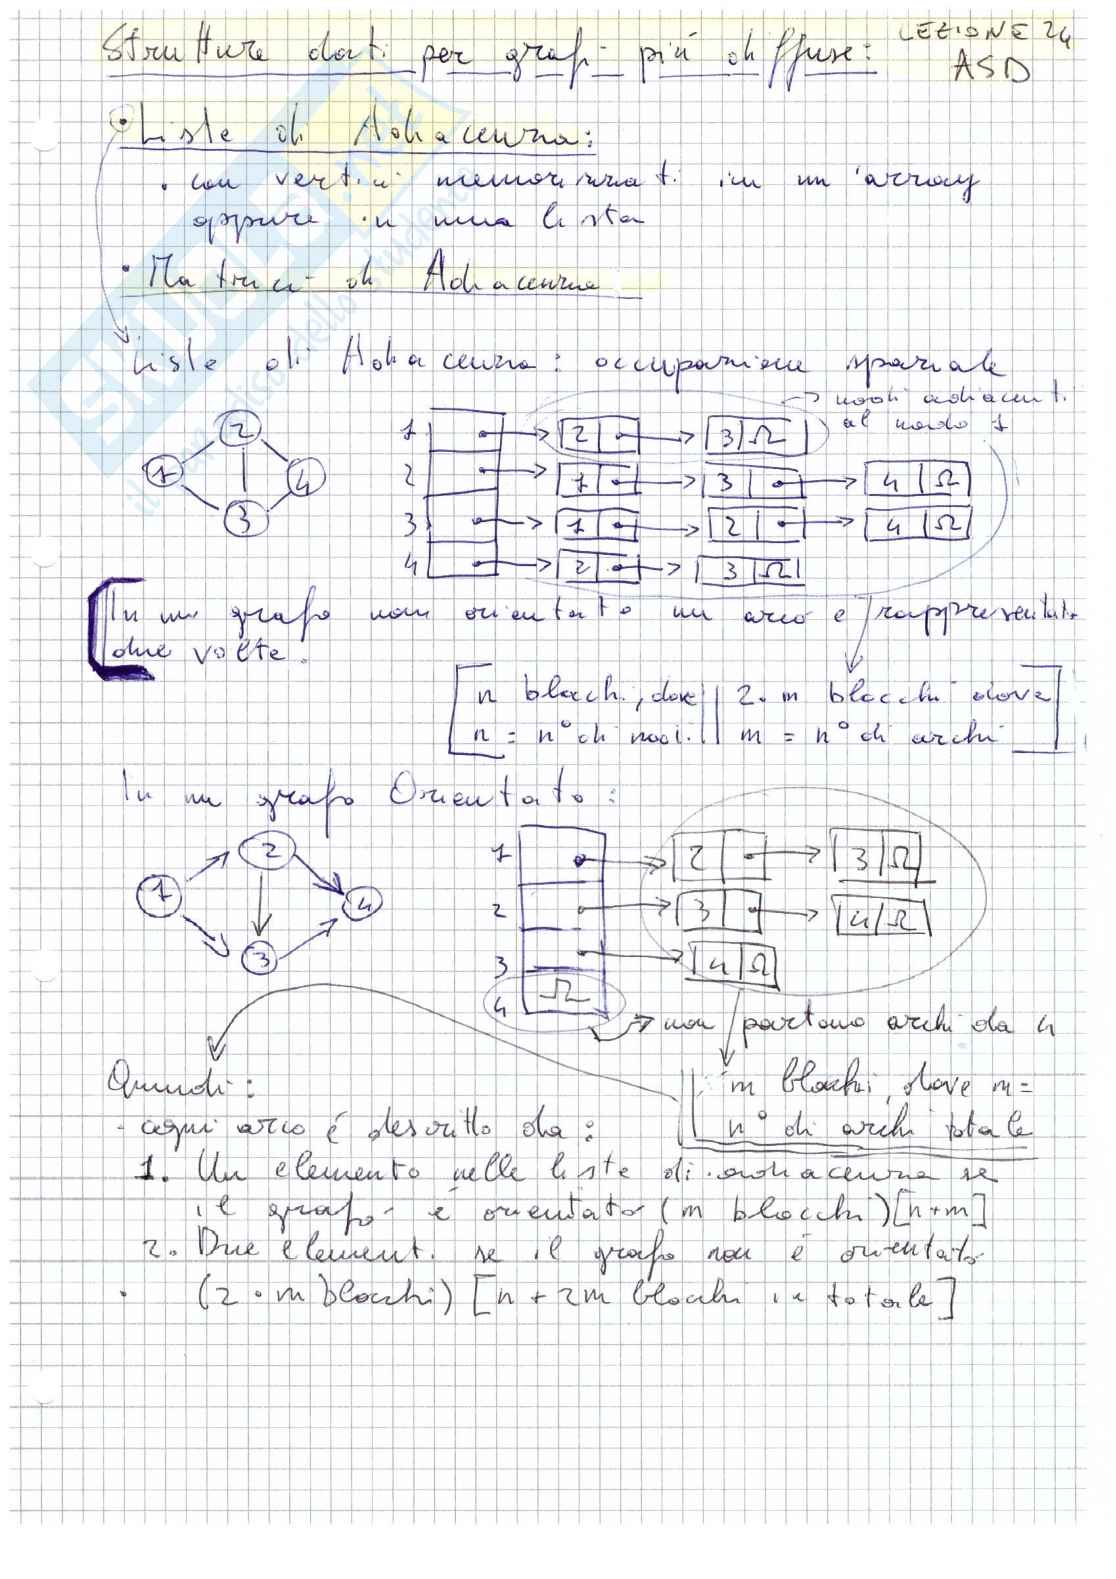 LEZIONE 24
Strutture dati per grafi più diffuse:
ASD
• Liste di Adiacenza:
• con vertici memorizzati in un array
oppure in una lista
• Matrici di Adiacenza
Liste di Adiacenza: occupazione spaziale
→ nodi adiacenti
al nodo 1
2
1 3 4
1 2 3 Ω
2 1 3 4 Ω
3 1 2 4 Ω
4 2 3 Ω
In un grafo non orientato un arco è rappresentato
due volte.
n blocchi, dove 2·m blocchi dove
n = n° di nodi. m = n° di archi
In un grafo Orientato:
2
1 4
3
1 2 3 Ω
2 3 4 Ω
3 4 Ω
4 Ω
non partono archi da 4
Quindi: m blocchi, dove m =
n° di archi totale
- ogni arco é descritto da:
1. Un elemento nelle liste di adiacenza se
il grafo é orientato (m blocchi) [n+m]
2. Due elementi se il grafo non é orientato
• (2·m blocchi) [n + 2m blocchi in totale]
SKUOLA.net